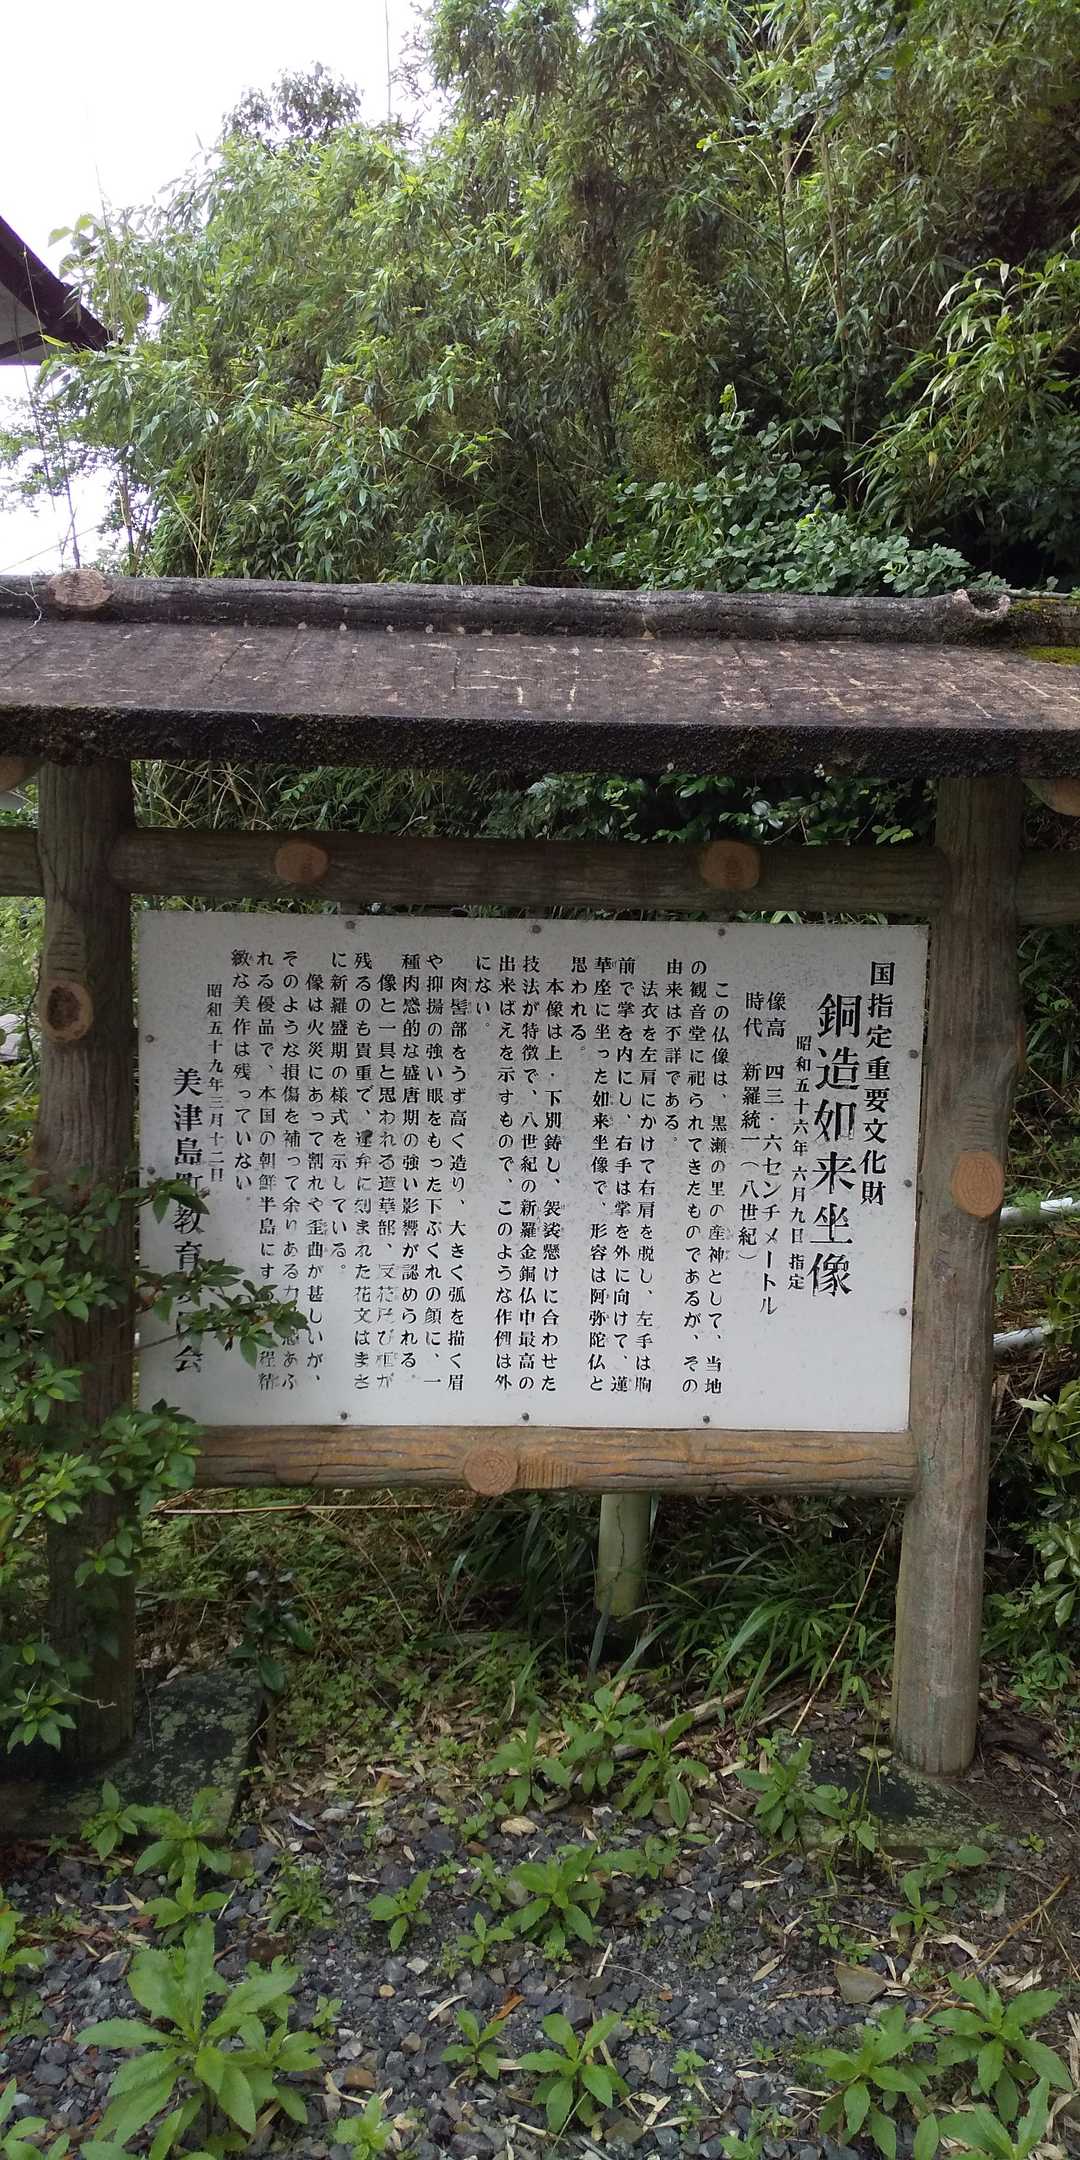 国指定重要文化財
銅造如来坐像
昭和五十六年 六月九日 指定
像高 四三・六センチメートル
時代 新羅統一(八世紀)
この仏像は、黒瀬の里の産神として、当地
の観音堂に祀られてきたものであるが、その
由来は不詳である。
法衣を左肩にかけて右肩を脱し、左手は胸
前で掌を内にし、右手は掌を外に向けて、蓮
華座に坐った如来坐像で、形容は阿弥陀仏と
思われる。
本像は上・下別鋳し、袈裟懸けに合わせた
技法が特徴で、八世紀の新羅金銅仏中最高の
出来ばえを示すもので、このような作例は外
にない。
肉髻部をうず高く造り、大きく弧を描く眉
や抑揚の強い眼をもった下ぶくれの顔に、一
種肉感的な盛唐期の強い影響が認められる。
像と一具と思われる蓮華部、反花及び框が
残るのも貴重で、蓮弁に刻まれた花文はまさ
に新羅盛期の様式を示している。
像は火災にあって割れや歪曲が甚しいが、
そのような損傷を補って余りある力感あふ
れる優品で、本国の朝鮮半島にす 程精
緻な美作は残っていない。
昭和五十九年三月十二日
美津島町教育委員会